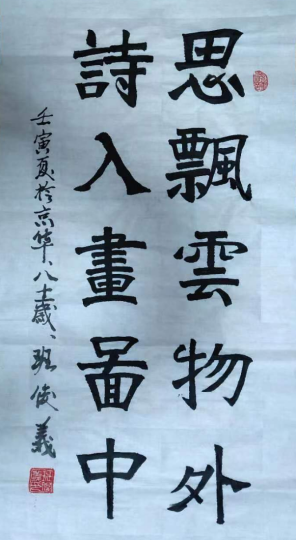 思飄雲物外
詩入畫圖中
壬寅夏於京华、八十歲、班俊義